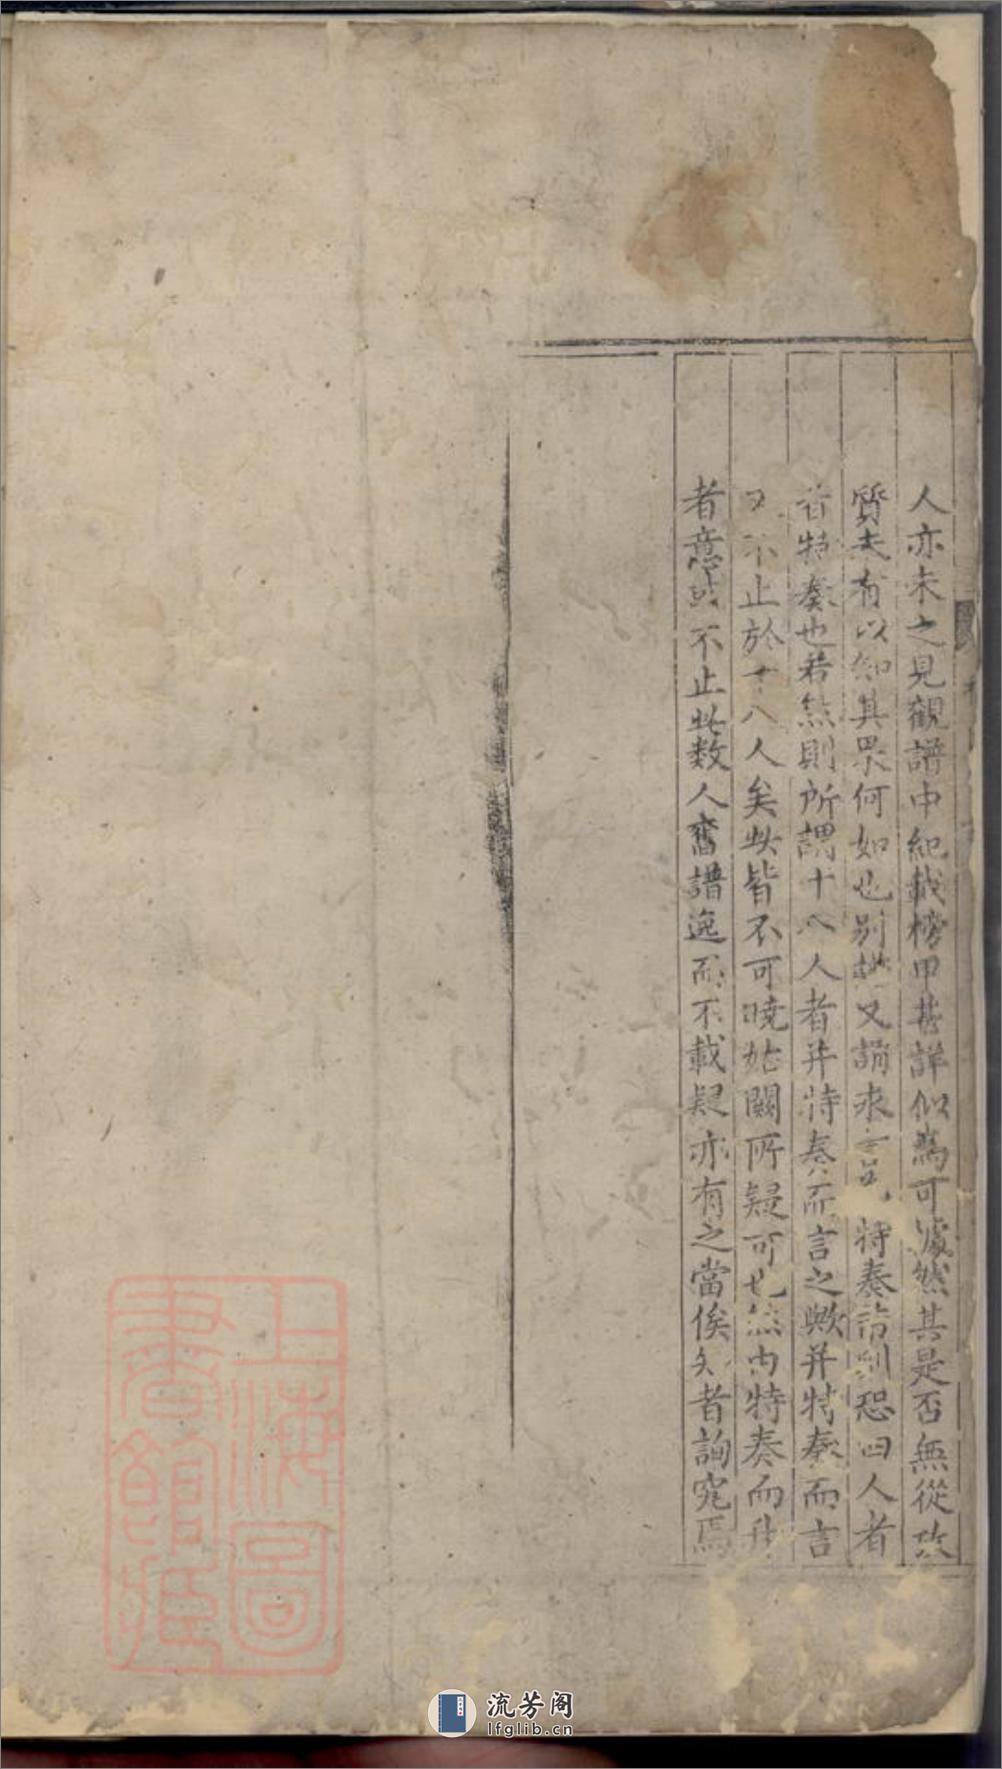 人亦未之見觀譜中紀載榜甲甚詳似為可據然其是否無從攷
質夫有以知其果何如也别又謂求言特奏則恐四人者
皆特奏也若然則所謂十八人者并特奏而言之歟并特奏而言
又不止於十八人矣此皆不可曉姑闕所疑可也然由特奏而升
者意或不止此数人舊譜逸而不載疑亦有之當俟知者詢究焉
上海圖
書館藏
流芳阁
lfglib.cn